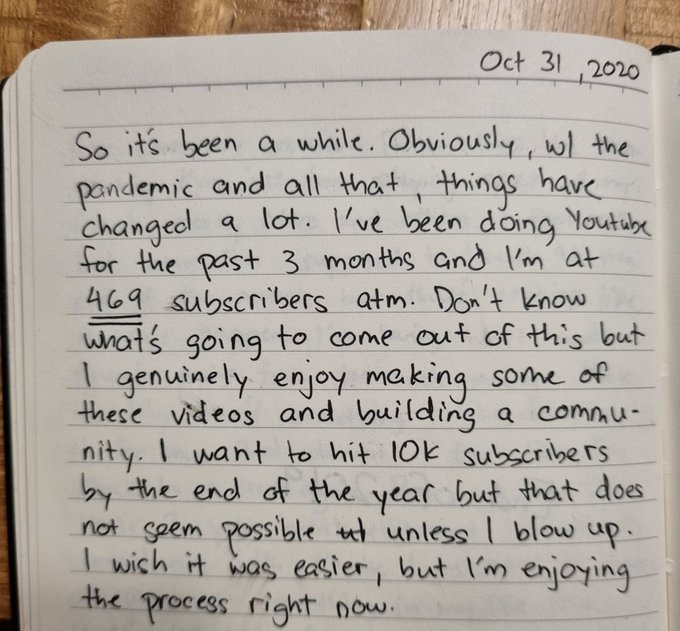 Oct 31, 2020
So it's been a while. Obviously, w/ the
pandemic and all that, things have
changed a lot. I've been doing Youtube
for the past 3 months and I'm at
469 subscribers atm. Don't know
what's going to come out of this but
I genuinely enjoy making some of
these videos and building a commu-
nity. I want to hit 10K subscribers
by the end of the year but that does
not seem possible unless I blow up.
I wish it was easier, but I'm enjoying
the process right now.